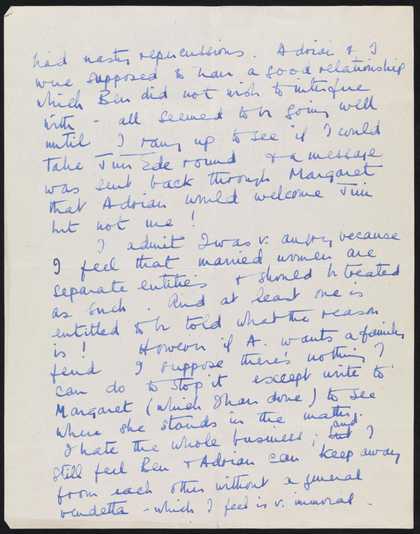 had nasty repercussions. Adrian & I
were supposed to have a good relationship
which Ben did not wish to interfere
with – all seemed to be going well
until I rang up to see if I could
take Jim Ede round & a message
was sent back through Margaret
that Adrian would welcome Jim
but not me!
I admit I was v. angry because
I feel that married women are
separate entities & should be treated
as such. And at least one is
entitled to be told what the reason
is! However if A. wants a family
feud I suppose there's nothing I
can do to stop it except write to
Margaret (which I have done) to see
where she stands in the matter.
I hate the whole business; and I
still feel Ben & Adrian can keep away
from each other without a general
vendetta – which I feel is v. immoral.